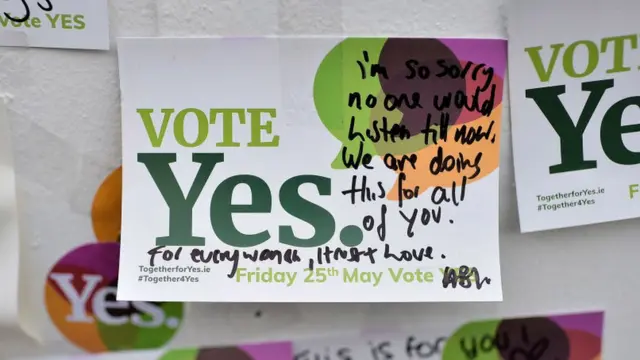 Vote YES
VOTE
Yes.
i'm so sorry
no one would
listen till now.
We are doing
this for all
of you.
For every woman, I trust + love.
TogetherforYes.ie
#Together4Yes
Friday 25th May Vote
VOTE
Ye
TogetherforYes.ie
#Together4Yes
F
Yes.
This is for you!